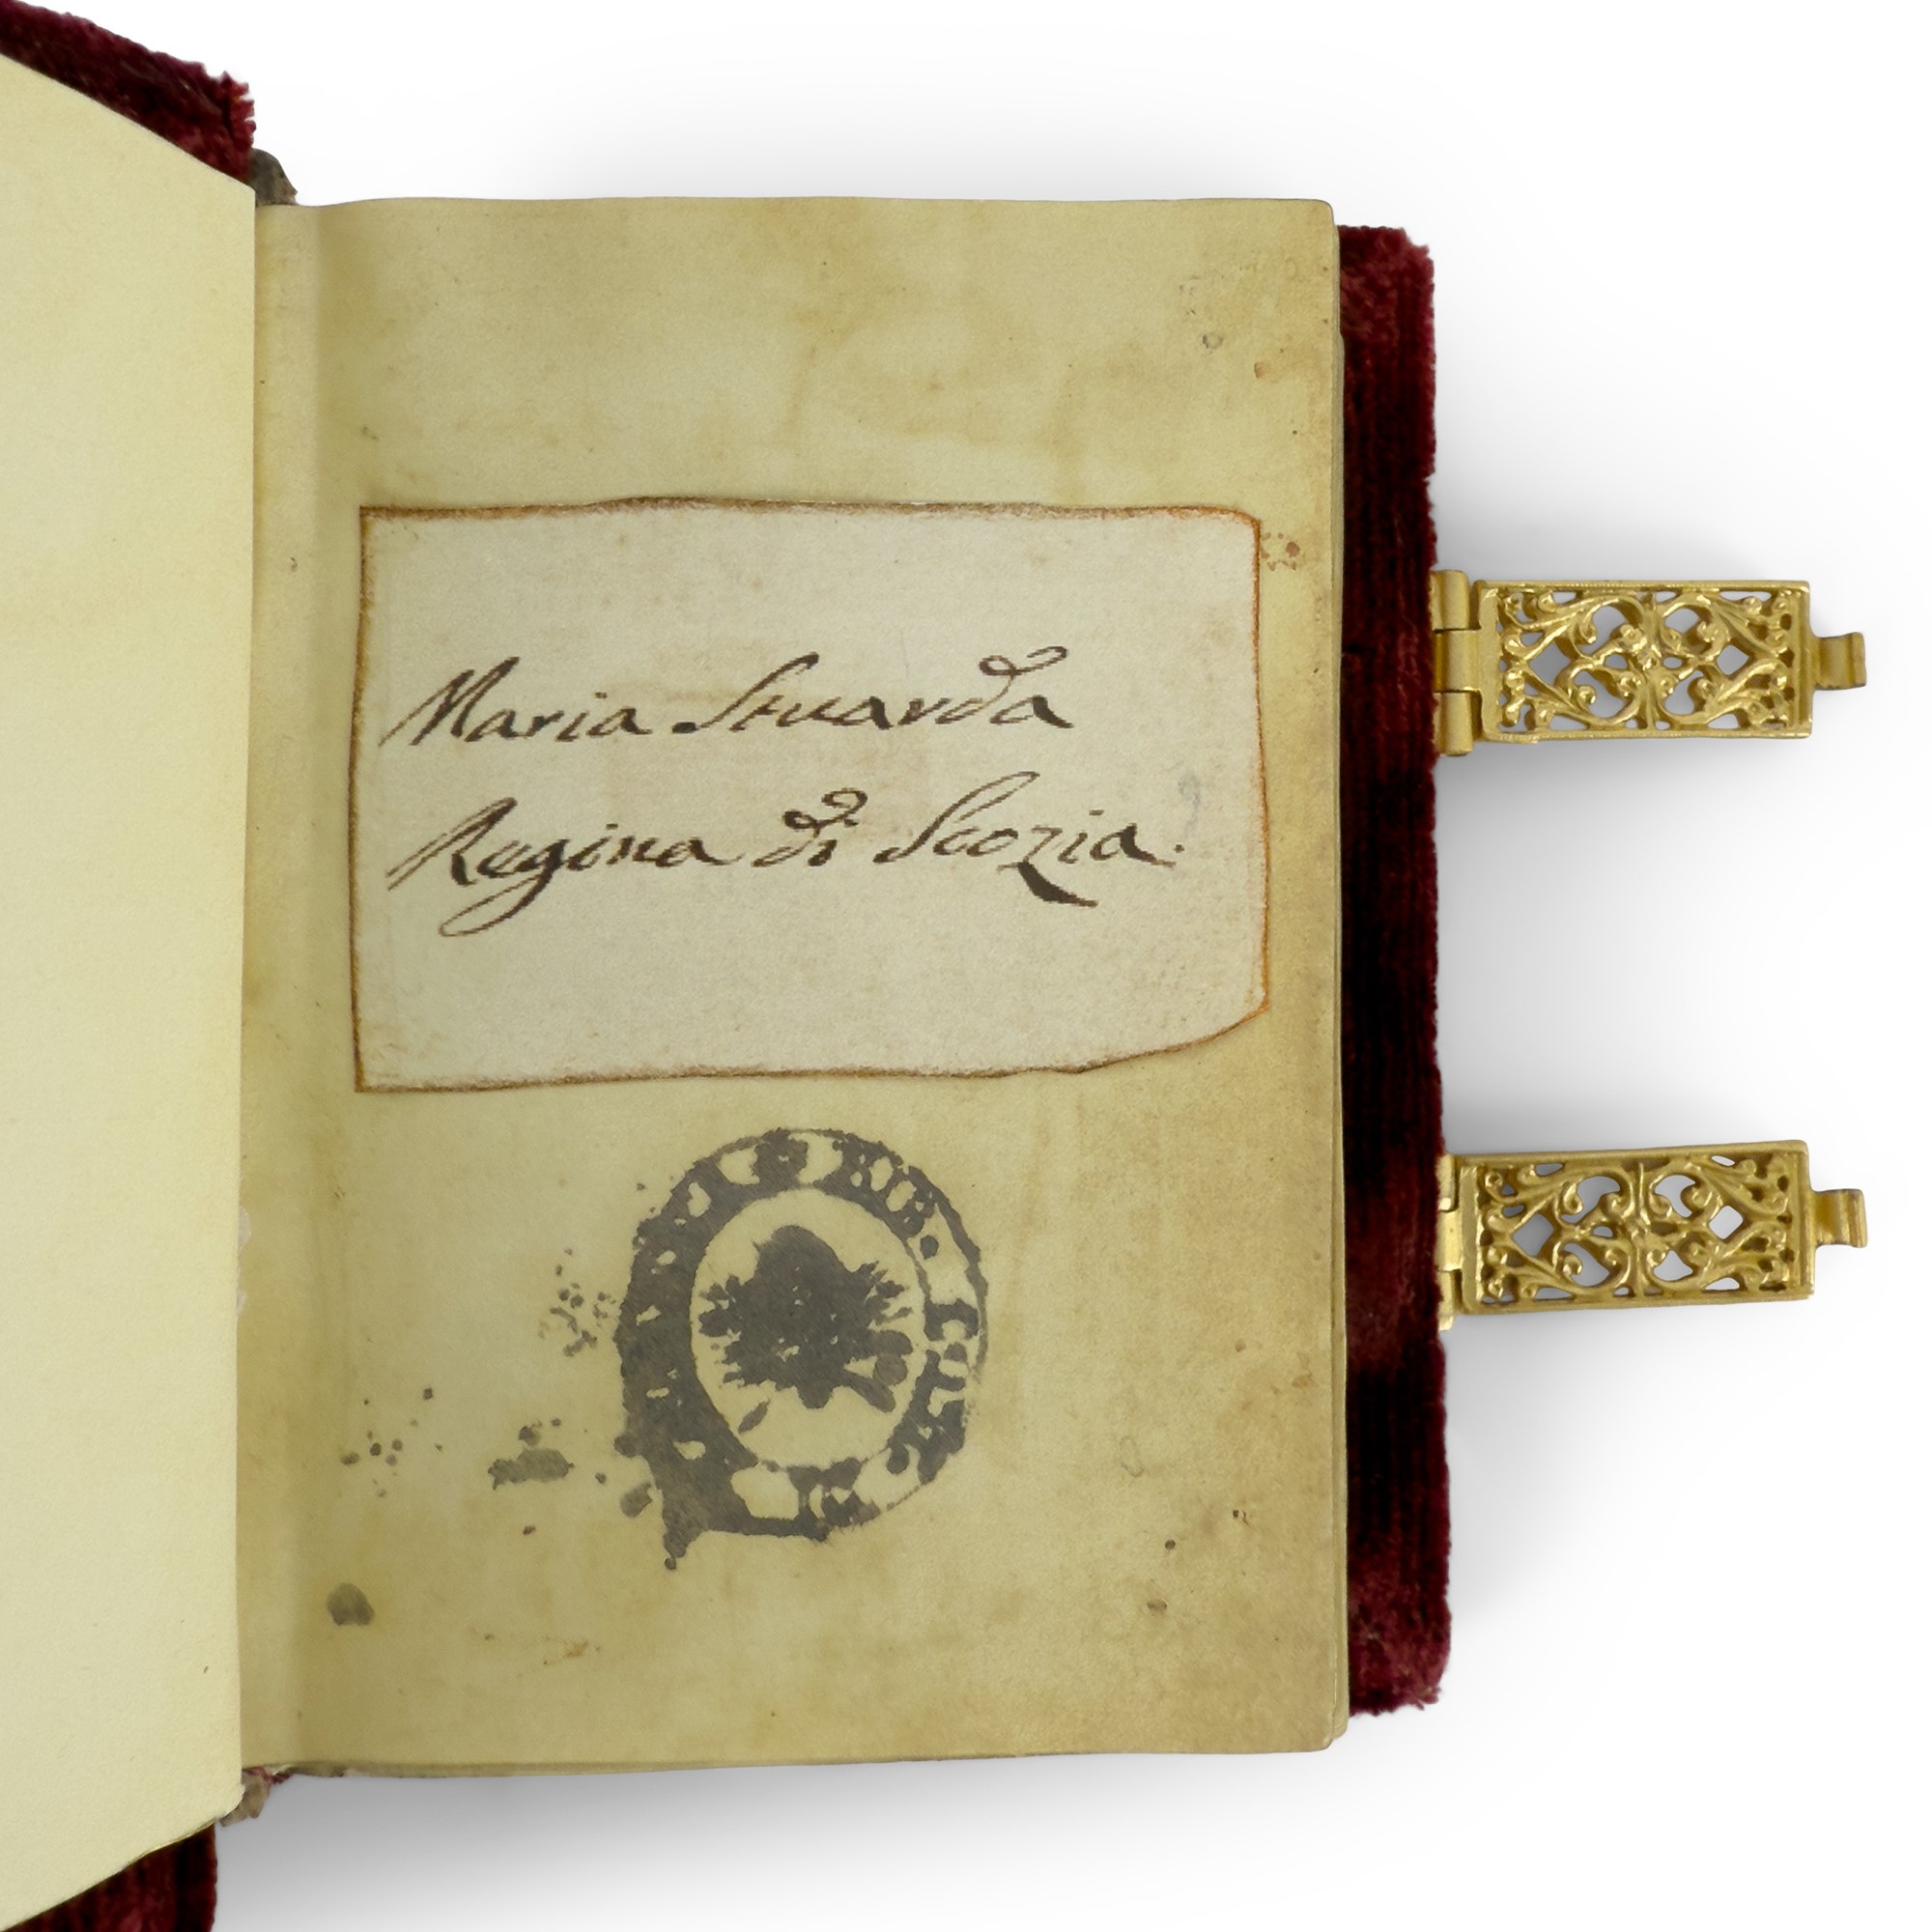 Maria Stuarda
Regina di Scozia.
BIB.